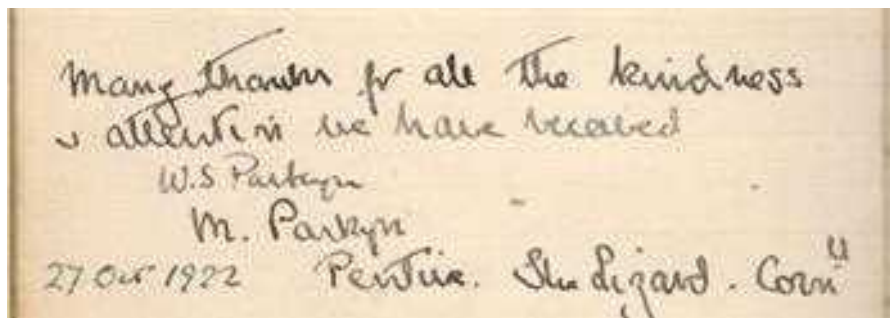 Many thanks for all the kindness
& attention we have received
W.S Parkyn
M. Parkyn
27 Oct 1922 Pentire. The Lizard. Cornll